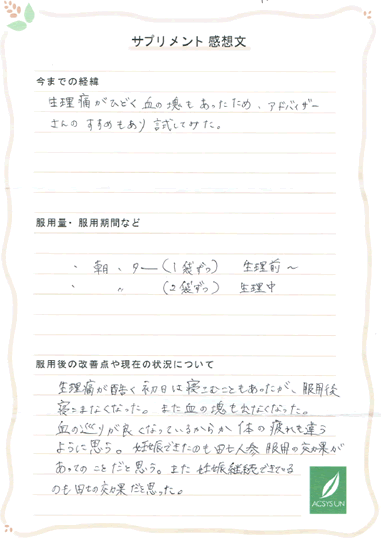 サプリメント 感想文
今までの経緯
生理痛がひどく血の塊もあったため、アドバイザー
さんのすすめもあり試してみた。
服用量・服用期間など
・ 朝、夕―(1袋ずつ) 生理前～
・ 〃 (2袋ずつ) 生理中
服用後の改善点や現在の状況について
生理痛が酷く初日は寝こむこともあったが、服用後
寝こまなくなった。また血の塊も出なくなった。
血の巡りが良くなっているからか体の疲れも違う
ように思う。妊娠できたのも田七人参服用の効果が
あってのことだと思う。また妊娠継続できている
のも田七の効果だと思った。
ACSYSUN